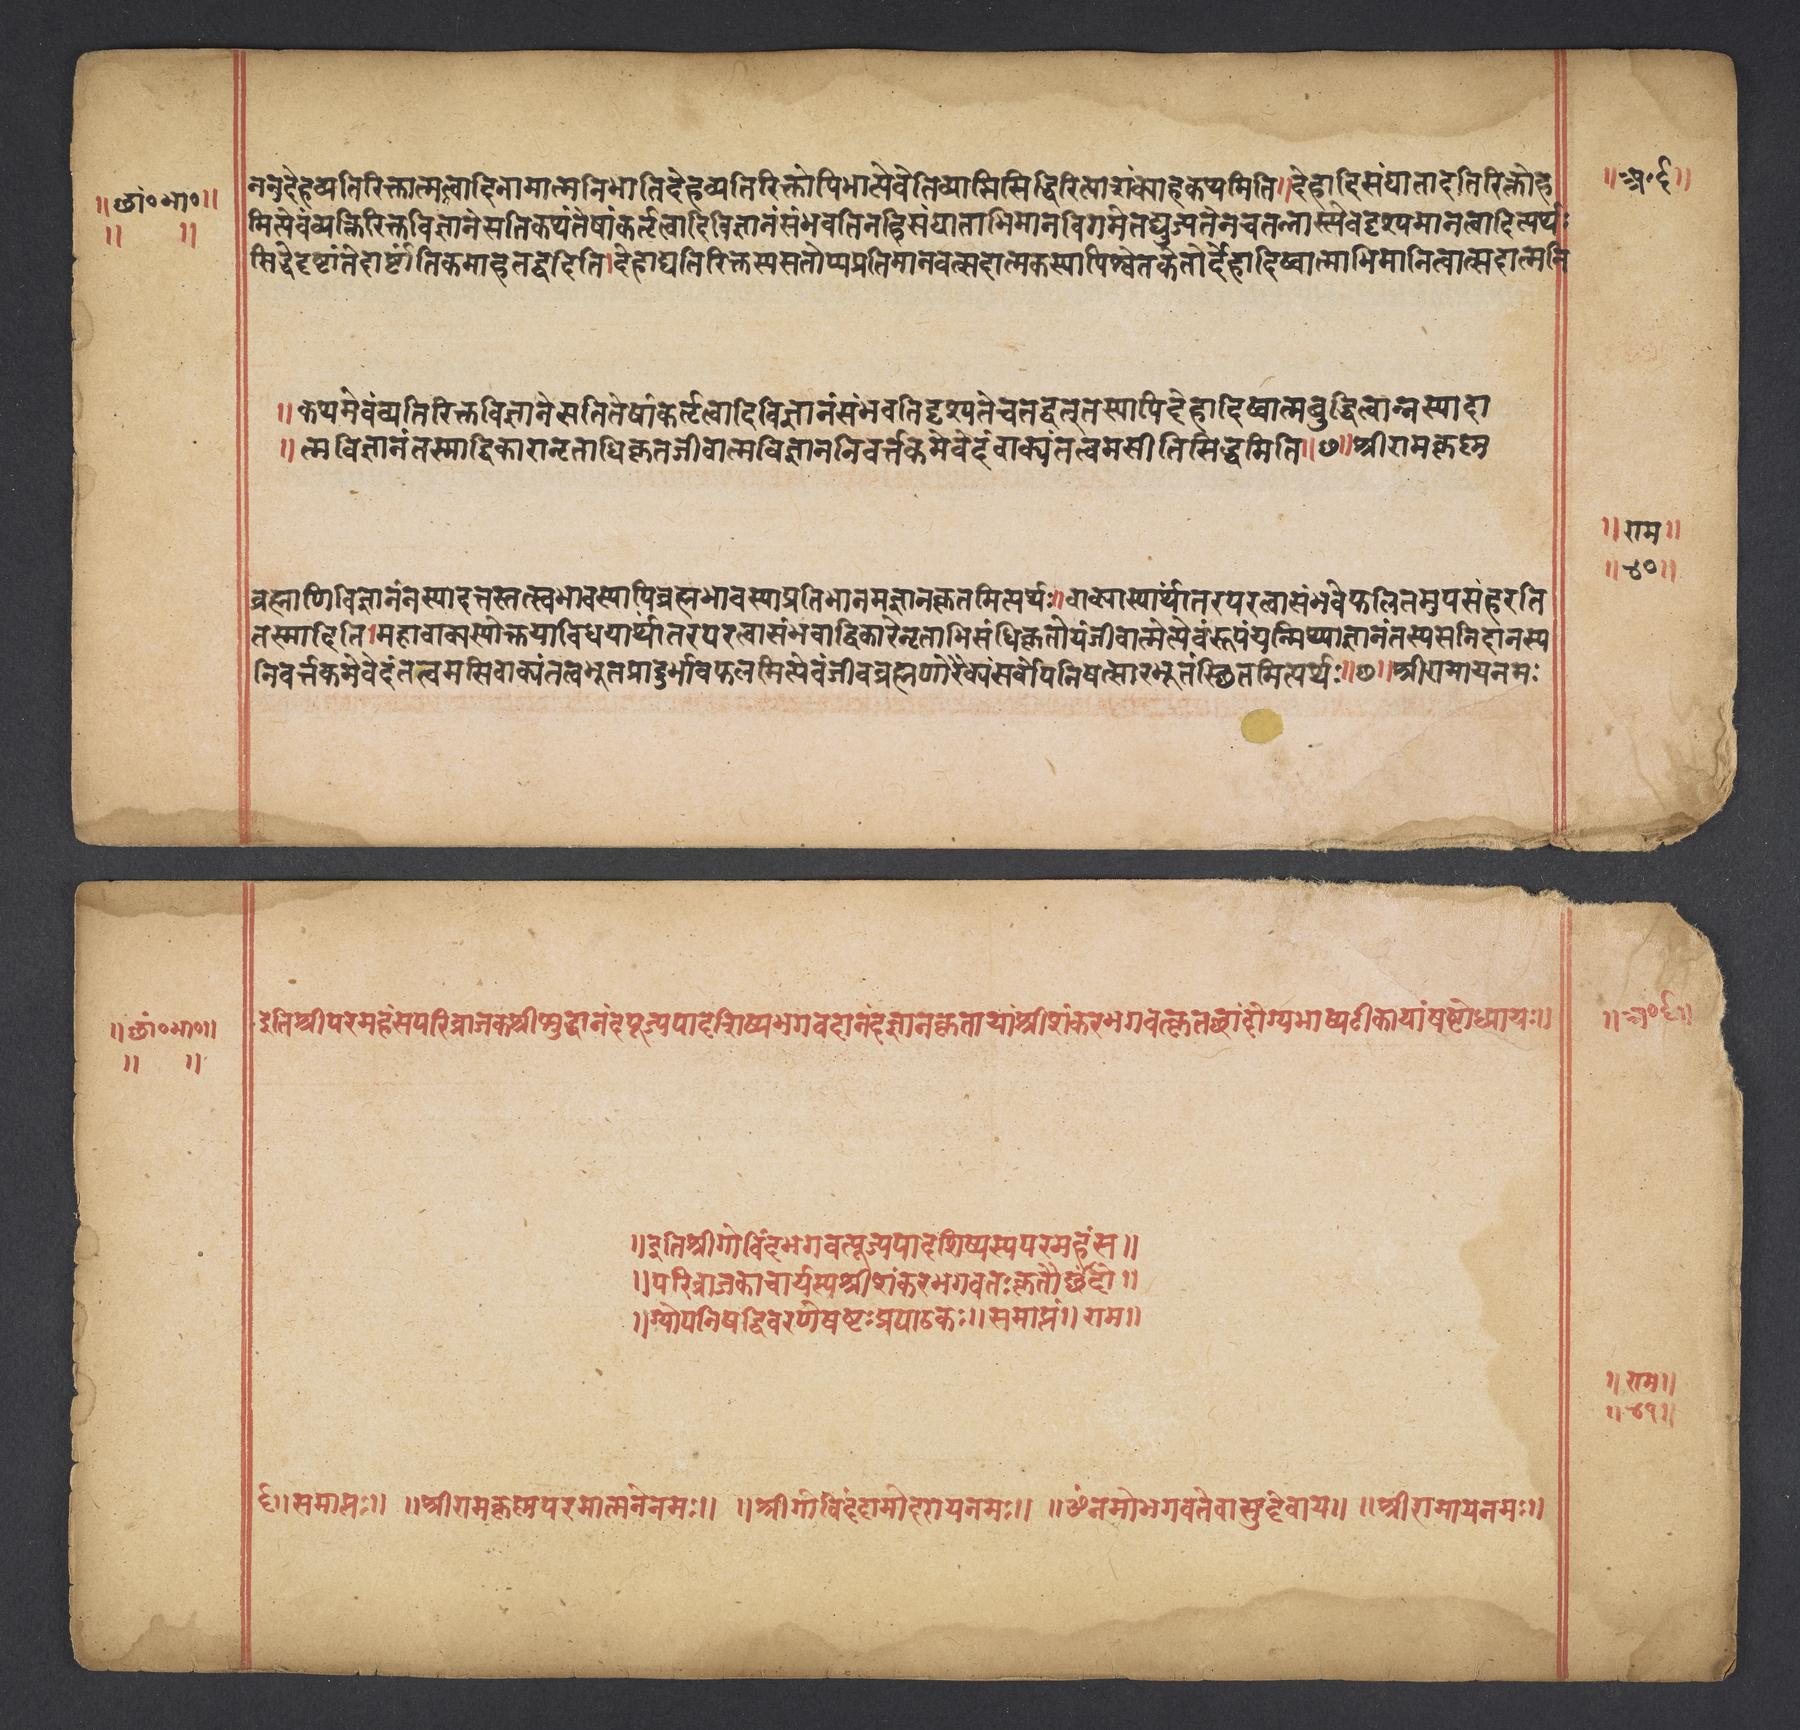 ॥छां०भा०॥
॥ ॥
॥अ०६॥
ननुदेहव्यतिरिक्तात्मत्वादिनामात्मनिभातिदेहव्यतिरिक्तोपिभात्येवेतिव्याप्तिसिद्धिरित्याशंक्याहकथमिति॥देहादिसंघातादतिरिक्तोह
मित्येवंव्यतिरिक्तविज्ञानेसतिकथंतेषांकर्तृत्वादिविज्ञानंसंभवतिनहिसंघाताभिमानविगमेतद्युज्यतेनचतन्नास्त्येवदृश्यमानत्वादित्यर्थः
सिद्धेदृष्टांतेदार्ष्टांतिकमाहतद्वदिति।देहाद्यतिरिक्तस्यसतोप्यप्रतिमानवत्सदात्मकस्यापिश्वेतकेतोर्देहादिष्वात्माभिमानित्वात्सदात्मनि
॥कथमेवंव्यतिरिक्तविज्ञानेसतितेषांकर्तृत्वादिविज्ञानंसंभवतिदृश्यतेचतद्वत्तस्यापिदेहादिष्वात्मबुद्धित्वान्नस्यादा
॥त्मविज्ञानंतस्माद्विकारानृताधिकृतजीवात्मविज्ञाननिवर्त्तकमेवेदंवाक्यंतत्वमसीतिसिद्धमिति॥७॥श्रीरामकृष्ण
॥राम॥
॥४०॥
ब्रह्मणिविज्ञानंनस्यादत्तस्तत्स्वभावस्यापिब्रह्मभावस्याप्रतिभानमज्ञानकृतमित्यर्थः॥वाक्यास्यार्थांतरपरत्वासंभवेफलितमुपसंहरति
तस्मादिति।महावाक्यस्योक्तयाविधयार्थांतरपरत्वासंभवाद्विकारेनृताभिसंधिकृतोयंजीवात्मेत्येवंरूपंयन्मिथ्याज्ञानंतस्यसनिदानस्य
निवर्त्तकमेवेदंतत्त्वमसिवाक्यंतत्वभूतप्रादुर्भावफलमित्येवंजीवब्रह्मणोरैक्यंसर्वोपनिषत्सारभूतंस्थितमित्यर्थः॥७॥श्रीरामायनमः
॥छां०भा०॥
॥ ॥
॥अ०६॥
इतिश्रीपरमहंसपरिव्राजकश्रीशुद्धानंदपूज्यपादशिष्यभगवदानंदज्ञानकृतायांश्रीशंकरभगवत्कृतछांदोग्यभाष्यटीकायांषष्टोध्यायः॥
॥इतिश्रीगोविंदभगवत्पूज्यपादशिष्यस्यपरमहंस॥
॥परिव्राजकाचार्यस्यश्रीशंकरभगवतःकृतौछांदो॥
॥ग्योपनिषद्विवरणेषष्टःप्रपाठकः॥समाप्तं॥राम॥
॥राम॥
॥४१॥
६॥समाप्तः॥ ॥श्रीरामकृष्णपरमात्मनेनमः॥ ॥श्रीगोविंददामोदरायनमः॥ ॥ॐनमोभगवतेवासुदेवाय॥ ॥श्रीरामायनमः॥